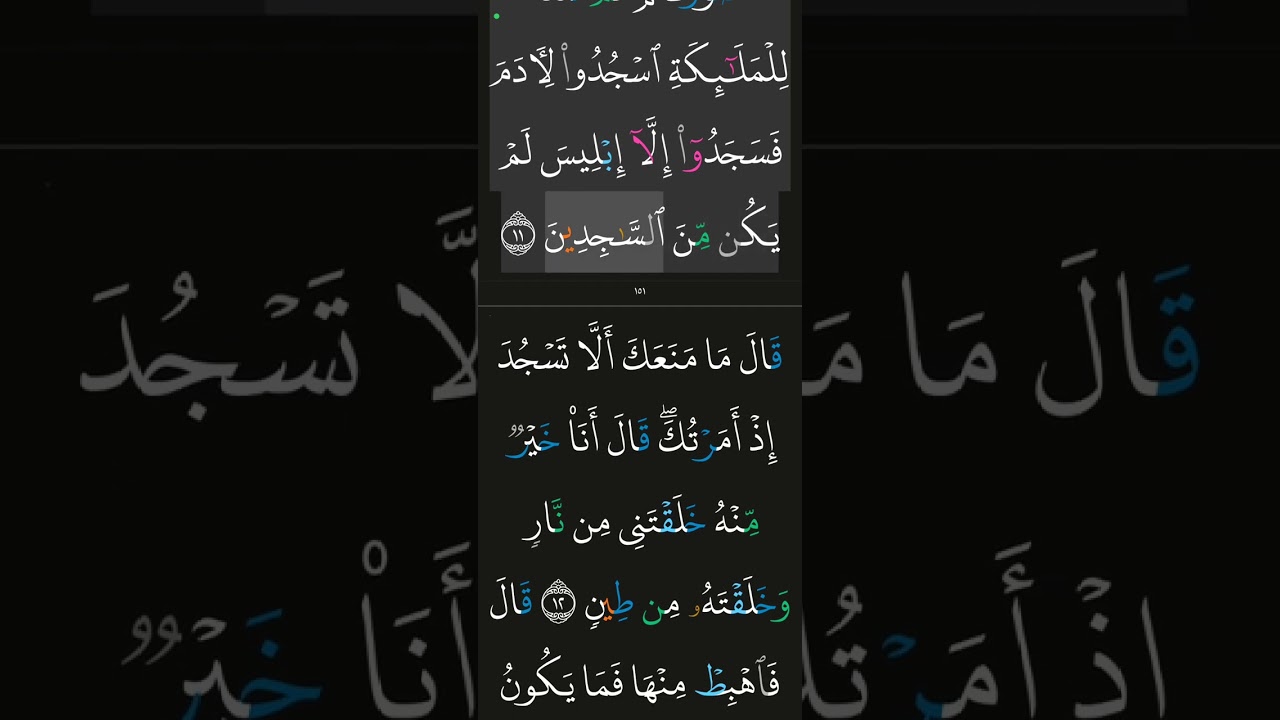 لِلْمَلَـٰٓئِكَةِ ٱسْجُدُوا۟ لِـَٔادَمَ
فَسَجَدُوٓا۟ إِلَّآ إِبْلِيسَ لَمْ
يَكُن مِّنَ ٱلسَّـٰجِدِينَ ١١
١٥١
قَالَ مَا مَنَعَكَ أَلَّا تَسْجُدَ
إِذْ أَمَرْتُكَ ۖ قَالَ أَنَا۠ خَيْرٌ
مِّنْهُ خَلَقْتَنِى مِن نَّارٍ
وَخَلَقْتَهُۥ مِن طِينٍ ١٢ قَالَ
فَٱهْبِطْ مِنْهَا فَمَا يَكُونُ